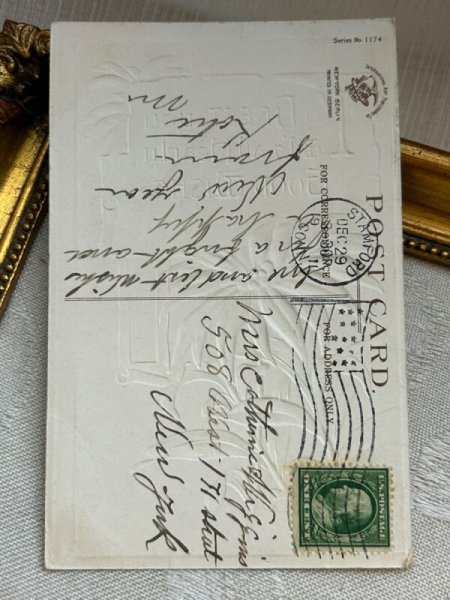 Series No. 1174
NEW-YORK BERLIN
PRINTED IN GERMANY
POST CARD.
FOR CORRESPONDENCE
FOR ADDRESS ONLY
STAMFORD
DEC 29
CONN.
Love and best wishes
for a bright and
a happy
New year
from
Katie
Mrs Catherine Higgins
508 West 171 street
New York
U.S. POSTAGE
ONE CENT